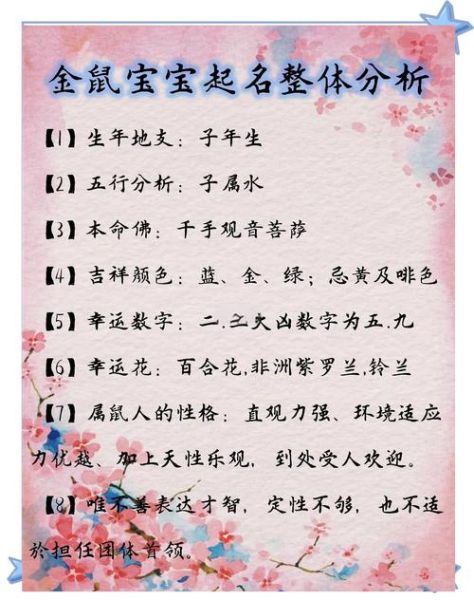 金鼠宝宝起名整体分析
【1】生年地支：子年生
【2】五行分析：子属水
【3】本命佛：千手观音菩萨
【4】吉祥颜色：蓝、金、绿；忌黄及啡色
【5】幸运数字：二.三大凶数字为五.九
【6】幸运花：百合花,非洲紫罗兰,铃兰
【7】属鼠人的性格：直观力强、环境适应
力优越、加上天性乐观，到处受人欢迎。
【8】唯不善表达才智，定性不够，也不适
於担任团体首领。